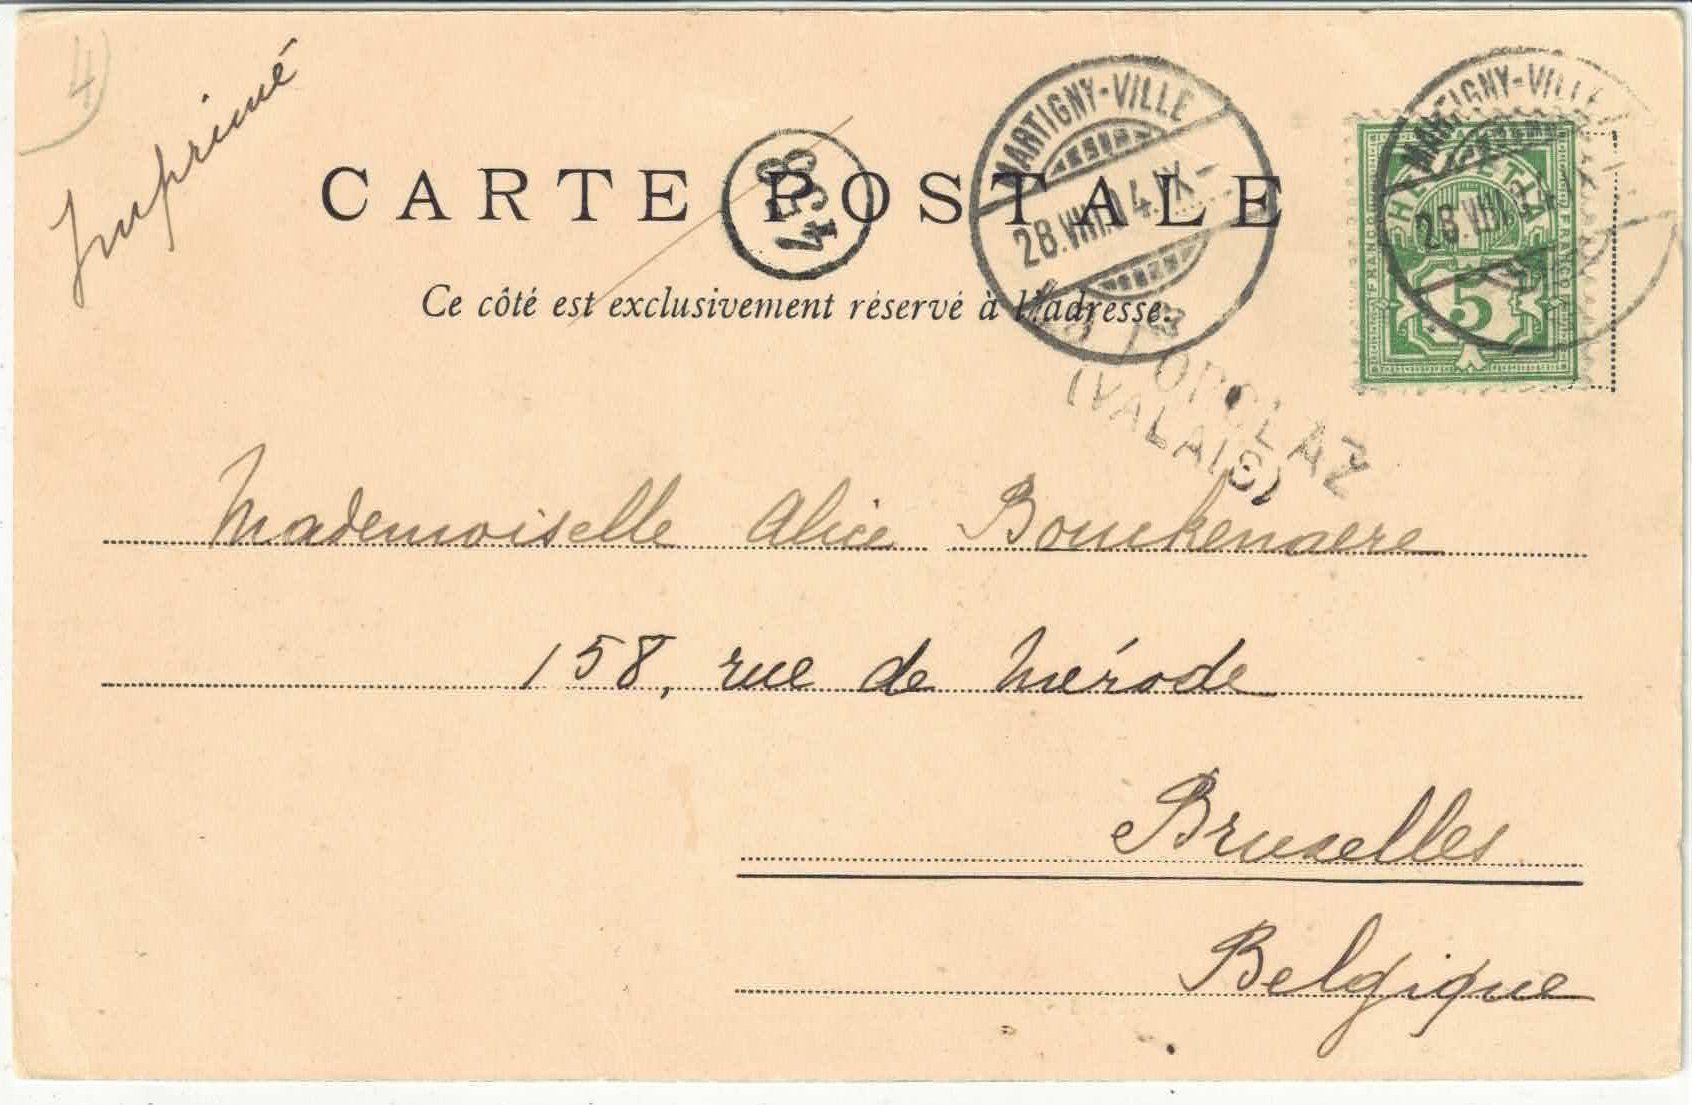 4
Imprimé
CARTE POSTALE
Ce côté est exclusivement réservé à l'adresse.
MARTIGNY-VILLE
28.VIII.04.IX-
MARTIGNY-VILLE
28.VIII.04
HELVETIA
FRANCO
FRANCO
5
(VALAIS)
Mademoiselle Alice Bouckenaere
158, rue de Mérode
Bruxelles
Belgique